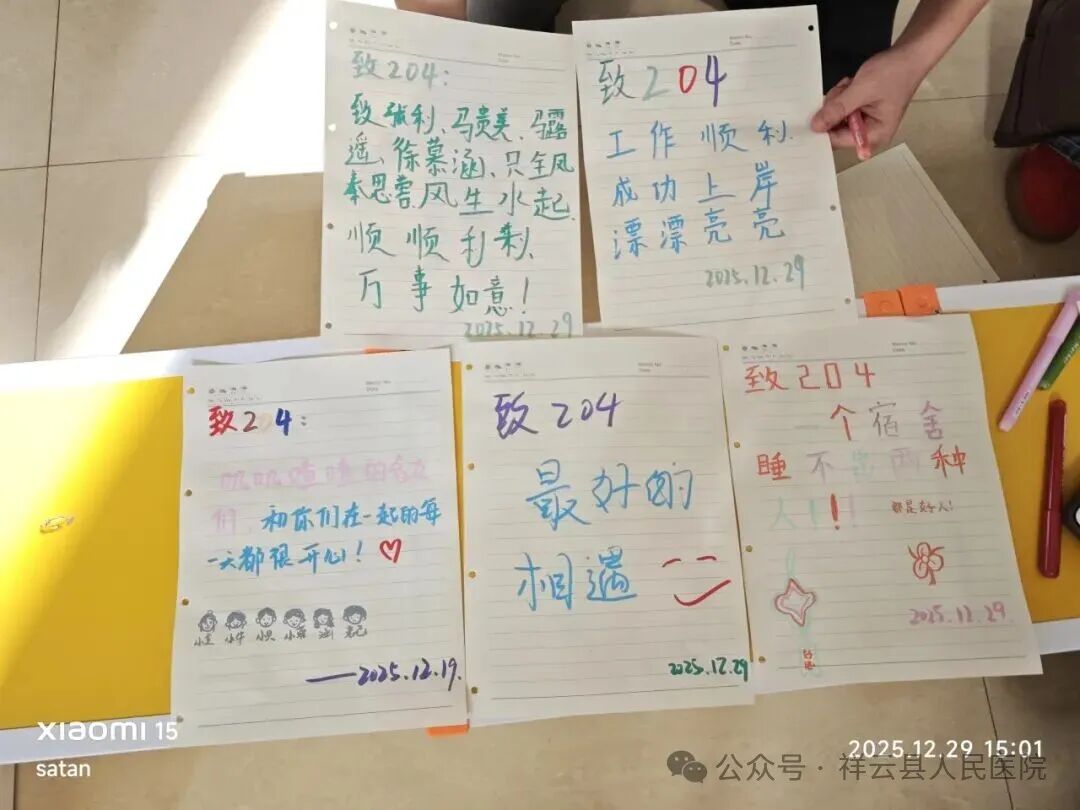 致204:
致张利、马贵美、马露
遥、徐慕涵、只全凤
秦思蓉、风生水起、
顺顺利利、
万事如意!
2025.12.29
致204
工作顺利、
成功上岸
漂漂亮亮
2025.12.29
致204:
叽叽喳喳的室友
们,和你们在一起的每
一天都很开心!
——2025.12.19.
致204
最好的
相遇
2025.12.29
致204
一个宿舍
睡不出两种
人!!!
都是好人!
2025.12.29.
xiaomi 15
satan
2025.12.29 15:01
公众号·祥云县人民医院